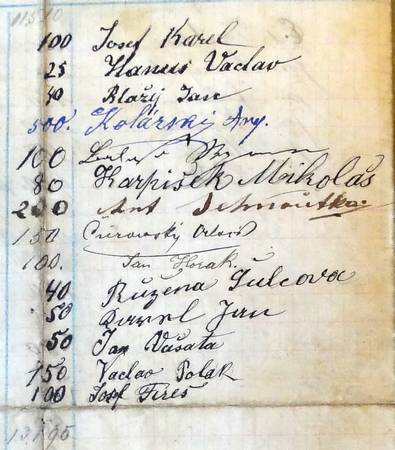 11510
100 Josef Karel
25 Hanus Vaclav
40 Blažij Jan
500. Kolarsky Ang.
100
80 Karpišek Mikolaš
200 Ant Jehnoutka
150 Curowsky
100. Jan Horak.
40 Ružena Šulcova
50 Pavel Jan
50 Jan Vašata
150 Vaclav Polak
100 Josef Fires
13195